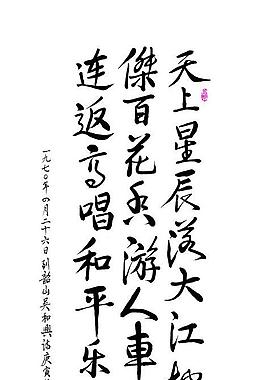 天上星辰落大江
傑百花香游人車
连返高唱和平乐
一九七〇年四月二十六日到韶山吴和興诗庚寅